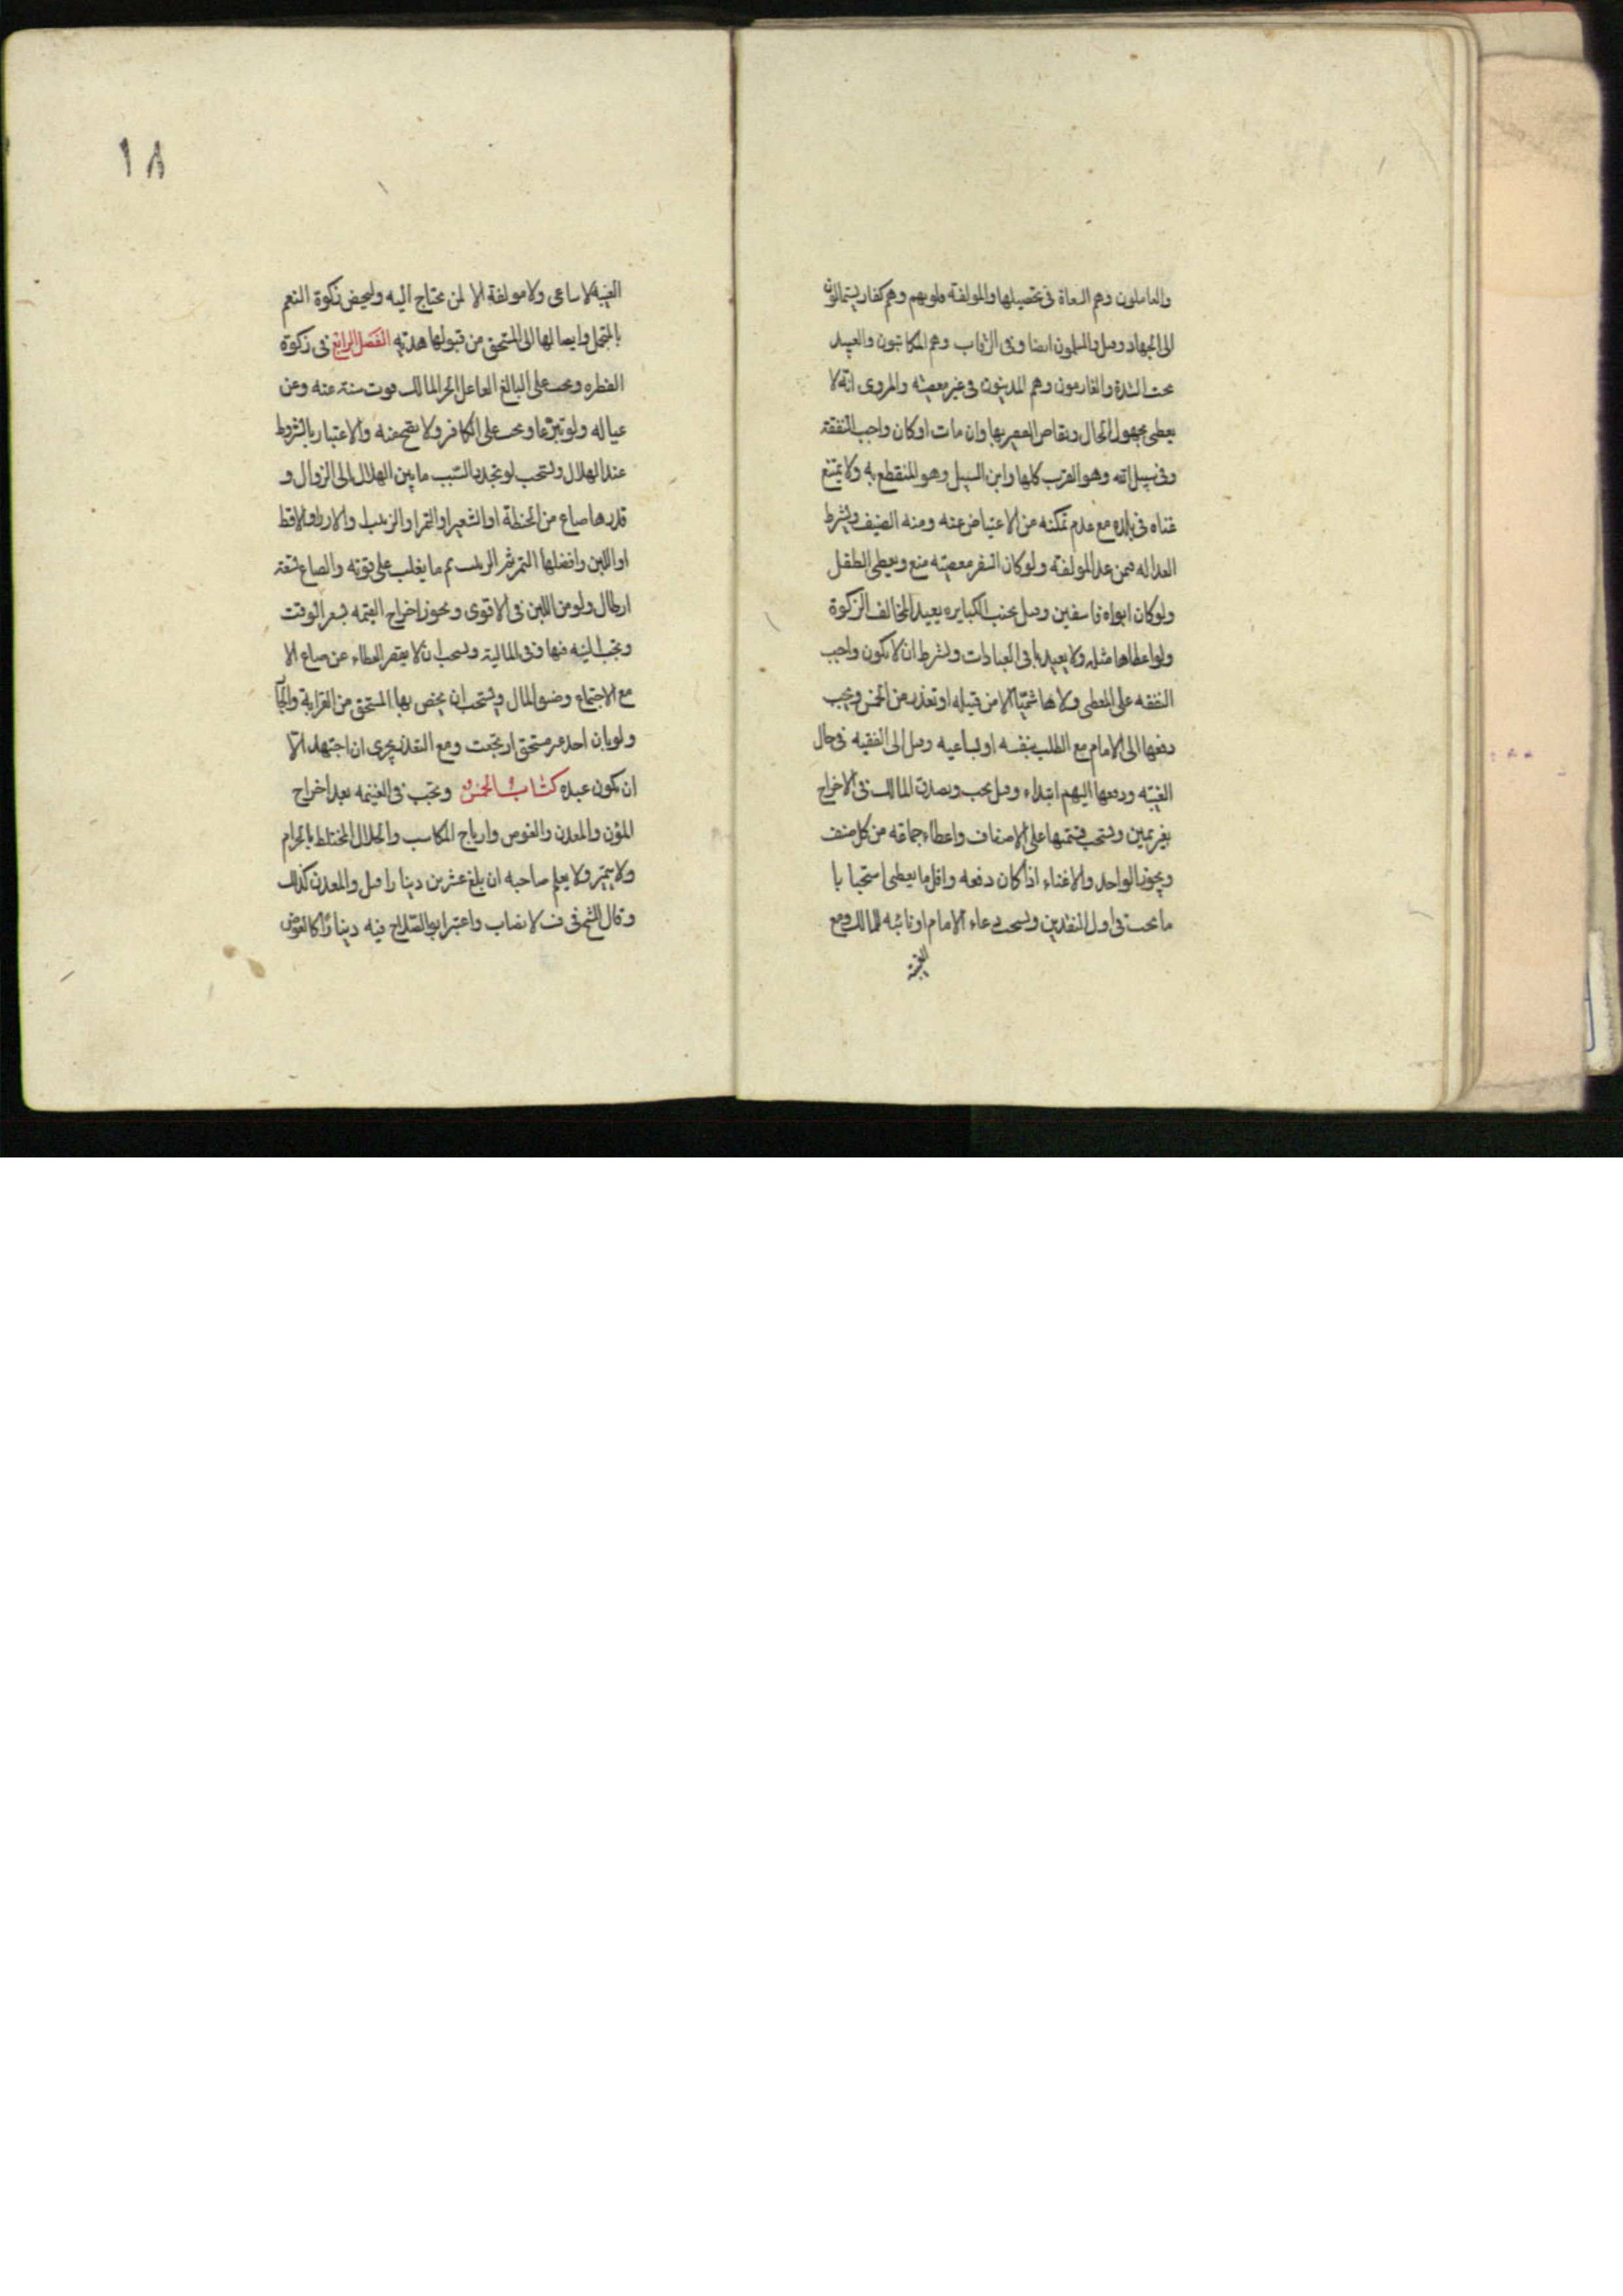 والعاملون وهم السعاة فى تحصيلها والمولفة قلوبهم وهم كفار يستمالون
الى الجهاد وقيل والمسلمون ايضا وفى الرقاب وهم المكاتبون والعبيد
تحت الشدة والغارمون وهم المدينون فى غير معصية والمروى انه لا
يعطى مجهول الحال ويقاص الفقير بها وان مات او كان واجب النفقة
وفى سبيل الله وهو القرب كلها وابن السبيل وهو المنقطع به ولا يمنع
غناه فى بلده مع عدم تمكنه من الاعتياض عنه ومنه الضيف ويشترط
العداله فيمن عدا المولفة ولو كان السفر معصية منع ويعطى الطفل
ولو كان ابواه فاسقين وقيل تجنب الكباير ويعيد المخالف الزكوة
ولو اعطاها مثله ولا يعيد باقى العبادات ويشترط ان لا يكون واجب
النفقه على المعطى ولا هاشميا الا من قبيله او تعذر من الخمس ويجب
دفعها الى الامام مع الطلب بنفسه او بساعيه وقيل الى الفقيه فى حال
الغيبه ودفعها اليهم ابتداء وقيل يجب ويصدق المالك فى الاخراج
بغير يمين ويستحب قسمتها على الاصناف واعطاء جماعه من كل صنف
ويجوز الواحد والاغناء اذا كان دفعه واقل ما يعطى استحبابا
ما يجب فى اول النقدين ويستحب دعاء الامام او نائبه للمالك ومع
الغيبة
١٨
الغيبه لا ساعى ولا مولفة الا لمن يحتاج اليه وليخص زكوة النعم
بالمتجمل وايصالها الى المستحق من قبولها هديه الفصل الرابع فى زكوة
الفطره وتجب على البالغ العاقل الحر المالك قوت سنته عنه وعن
عياله ولو تبرعا وتجب على الكافر ولا تصح منه والاعتبار بالشروط
عند الهلال ويستحب لو تجدد السبب ما بين الهلال الى الزوال و
قدرها صاع من الحنطة او الشعير او التمر او الزبيب او الارز او الاقط
او اللبن وافضلها التمر ثم الزبيب ثم ما يغلب على قوته والصاع تسعة
ارطال ولو من اللبن فى الاقوى ويجوز اخراج القيمه بسعر الوقت
وتجب النيه فيها وفى المالية ويستحب ان لا يقصر العطاء عن صاع الا
مع الاجتماع وضيق المال ويستحب ان يخص بها المستحق من القرابة والجار
ولو بان احد غير مستحق ارتجعت ومع التعذر يجزى ان اجتهد الا
ان يكون عبده كتاب الخمس ويجب فى الغنيمه بعد اخراج
المؤن والمعدن والغوص وارباح المكاسب والحلال المختلط بالحرام
ولا يتميز ولا يعلم صاحبه ان بلغ عشرين دينارا قيل والمعدن كذلك
وقال الشيخ فى ف لا نصاب واعتبر ابو الصلاح فيه دينارا كالغوص